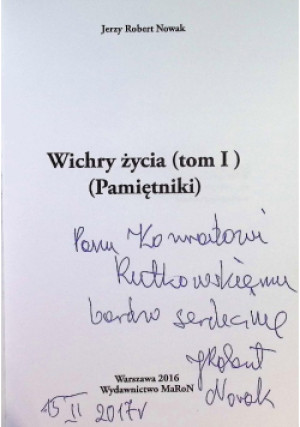 Jerzy Robert Nowak
Wichry życia (tom I )
(Pamiętniki)
Panu Konradowi
Rutkowskiemu
bardzo serdecznie
JRobert
Nowak
Warszawa 2016
Wydawnictwo MaRoN
15 II 2017r